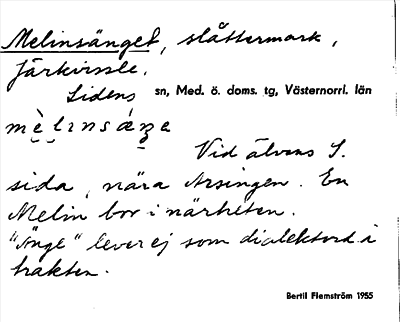 Melinsänget, slåttermark,
Järkvissle.
Lidens sn, Med. ö. doms. tg, Västernorrl. län
mèlinsáŋe
Vid älvens S.
sida, nära Arsingen. En
Melin bor i närheten.
"Änge" lever ej som dialektord i
trakten.
Bertil Flemström 1955